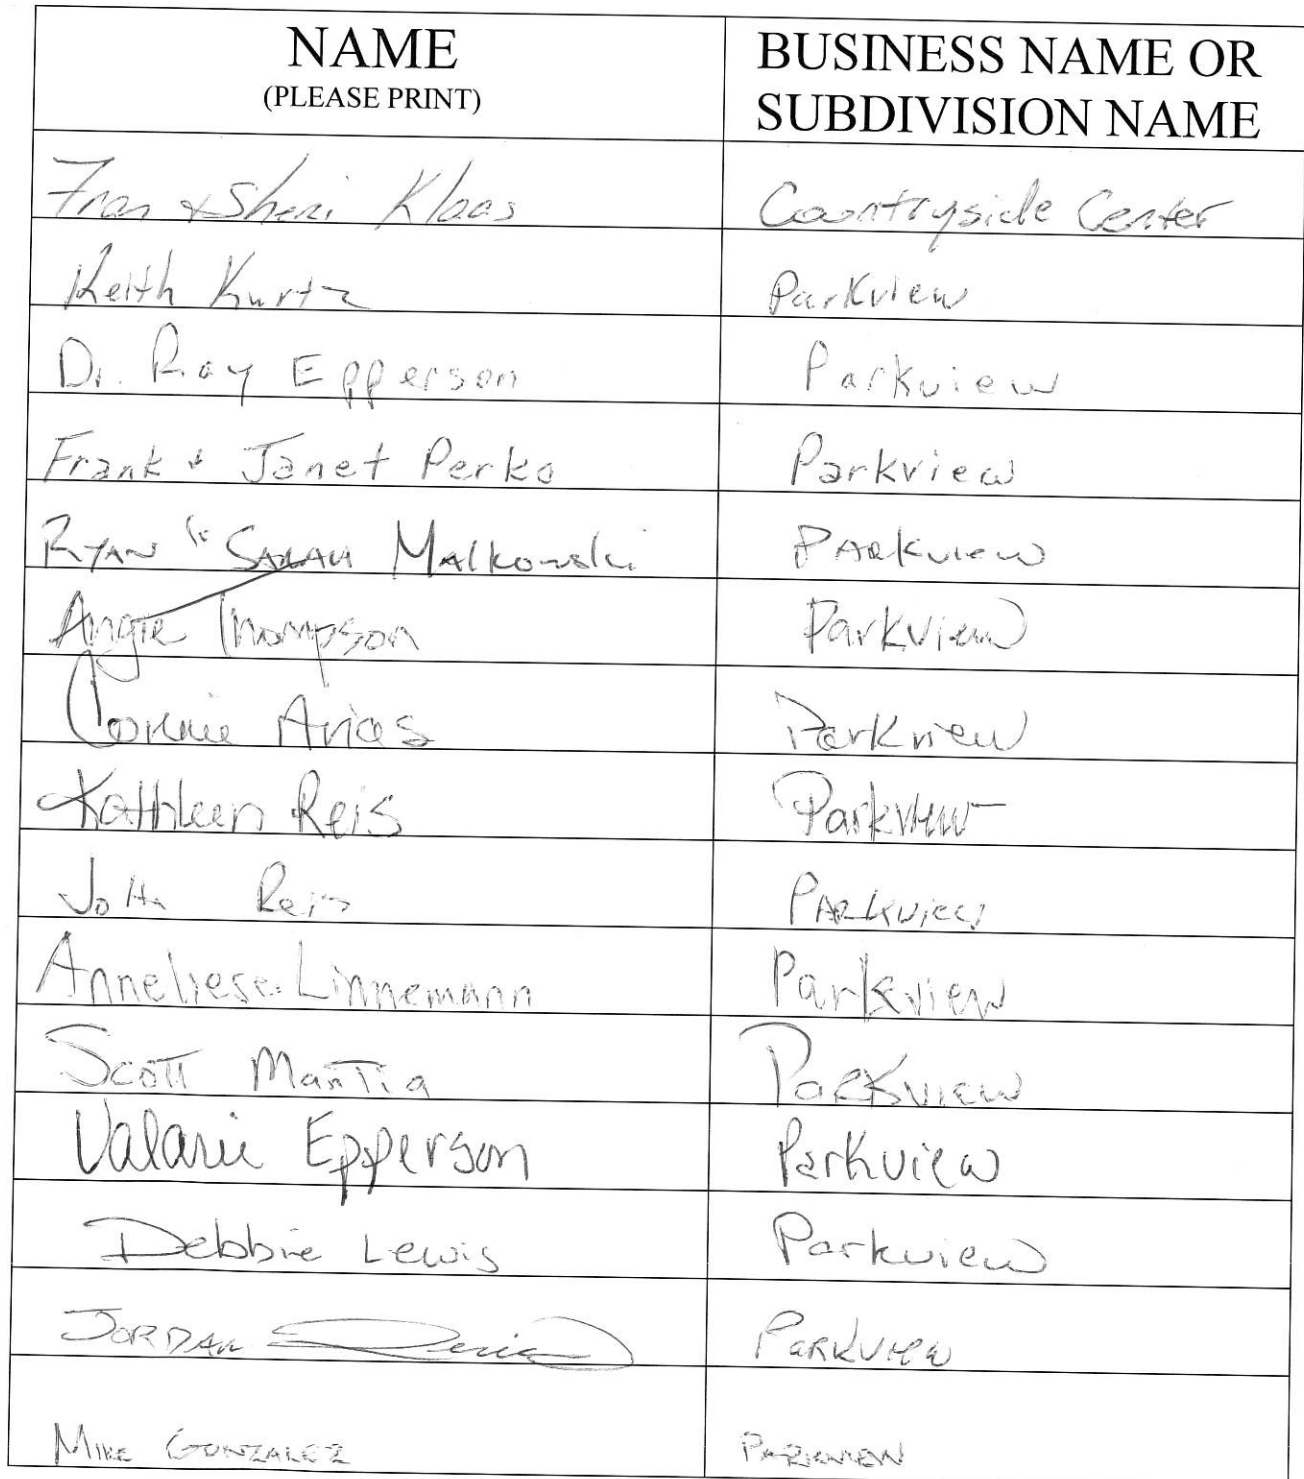 NAME
(PLEASE PRINT)
BUSINESS NAME OR
SUBDIVISION NAME
Fran & Sheri Klaas Countryside Center
Keith Kurtz Parkview
Dr. Ray Epperson Parkview
Frank & Janet Perko Parkview
RYAN & SARAH Malkowski PARKview
Angie Thompson Parkview
Connie Arias Parkview
Kathleen Reis Parkview
John Reis PARKview
Anneliese Linnemann Parkview
Scott Mantia Parkview
Valarie Epperson Parkview
Debbie Lewis Parkview
JORDAN PARKVIEW
MIKE GONZALEZ PARKVIEW